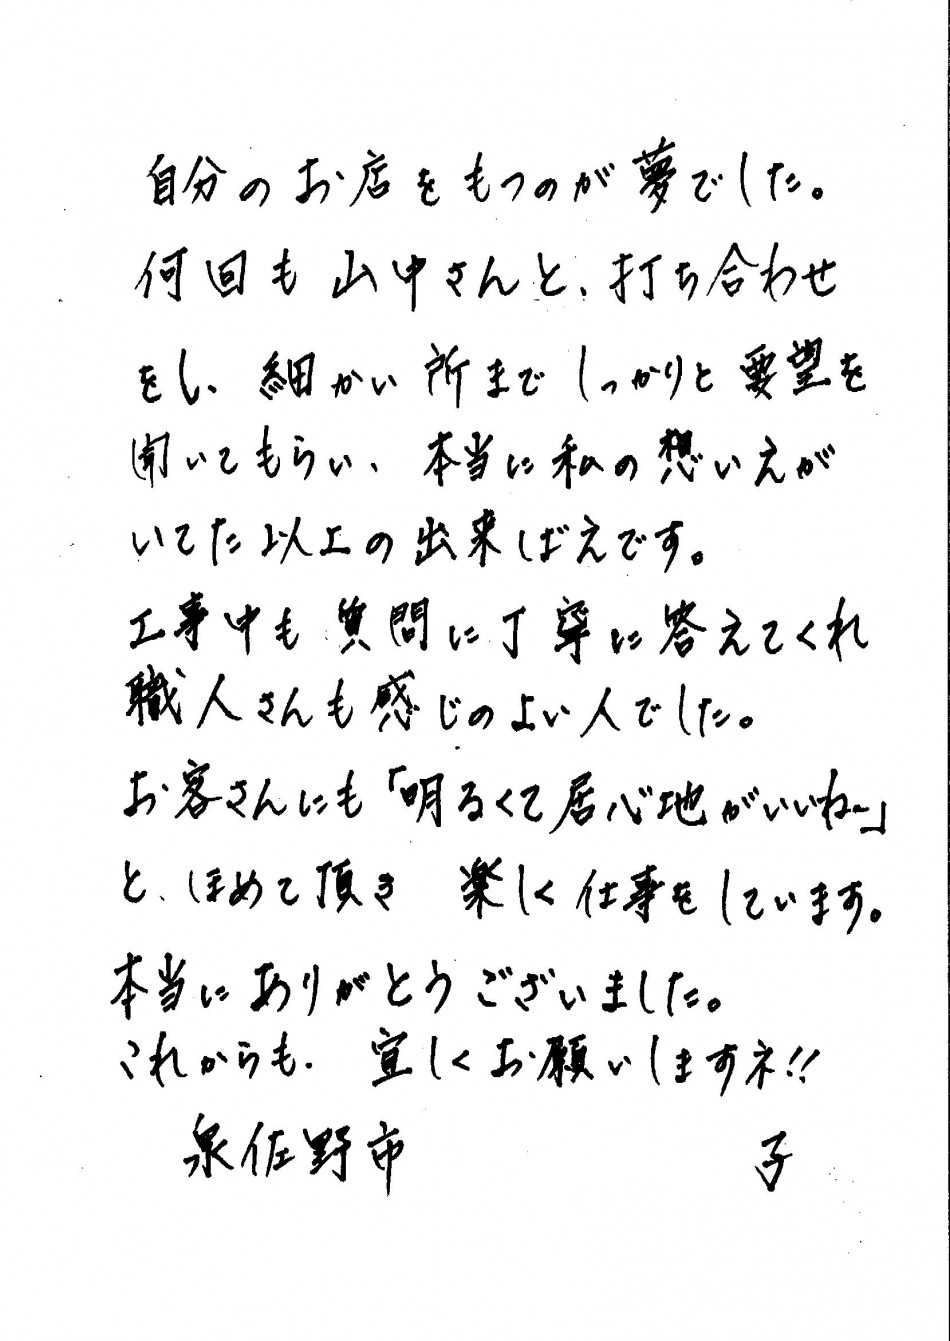 自分のお店をもつのが夢でした。
何回も山中さんと、打ち合わせ
をし、細かい所までしっかりと要望を
聞いてもらい、本当に私の想いえが
いてた以上の出来ばえです。
工事中も質問に丁寧に答えてくれ
職人さんも感じのよい人でした。
お客さんにも「明るくて居心地がいいね~」
と、ほめて頂き 楽しく仕事をしています。
本当にありがとうございました。
これからも、宜しくお願いしますネ!!
泉佐野市 子